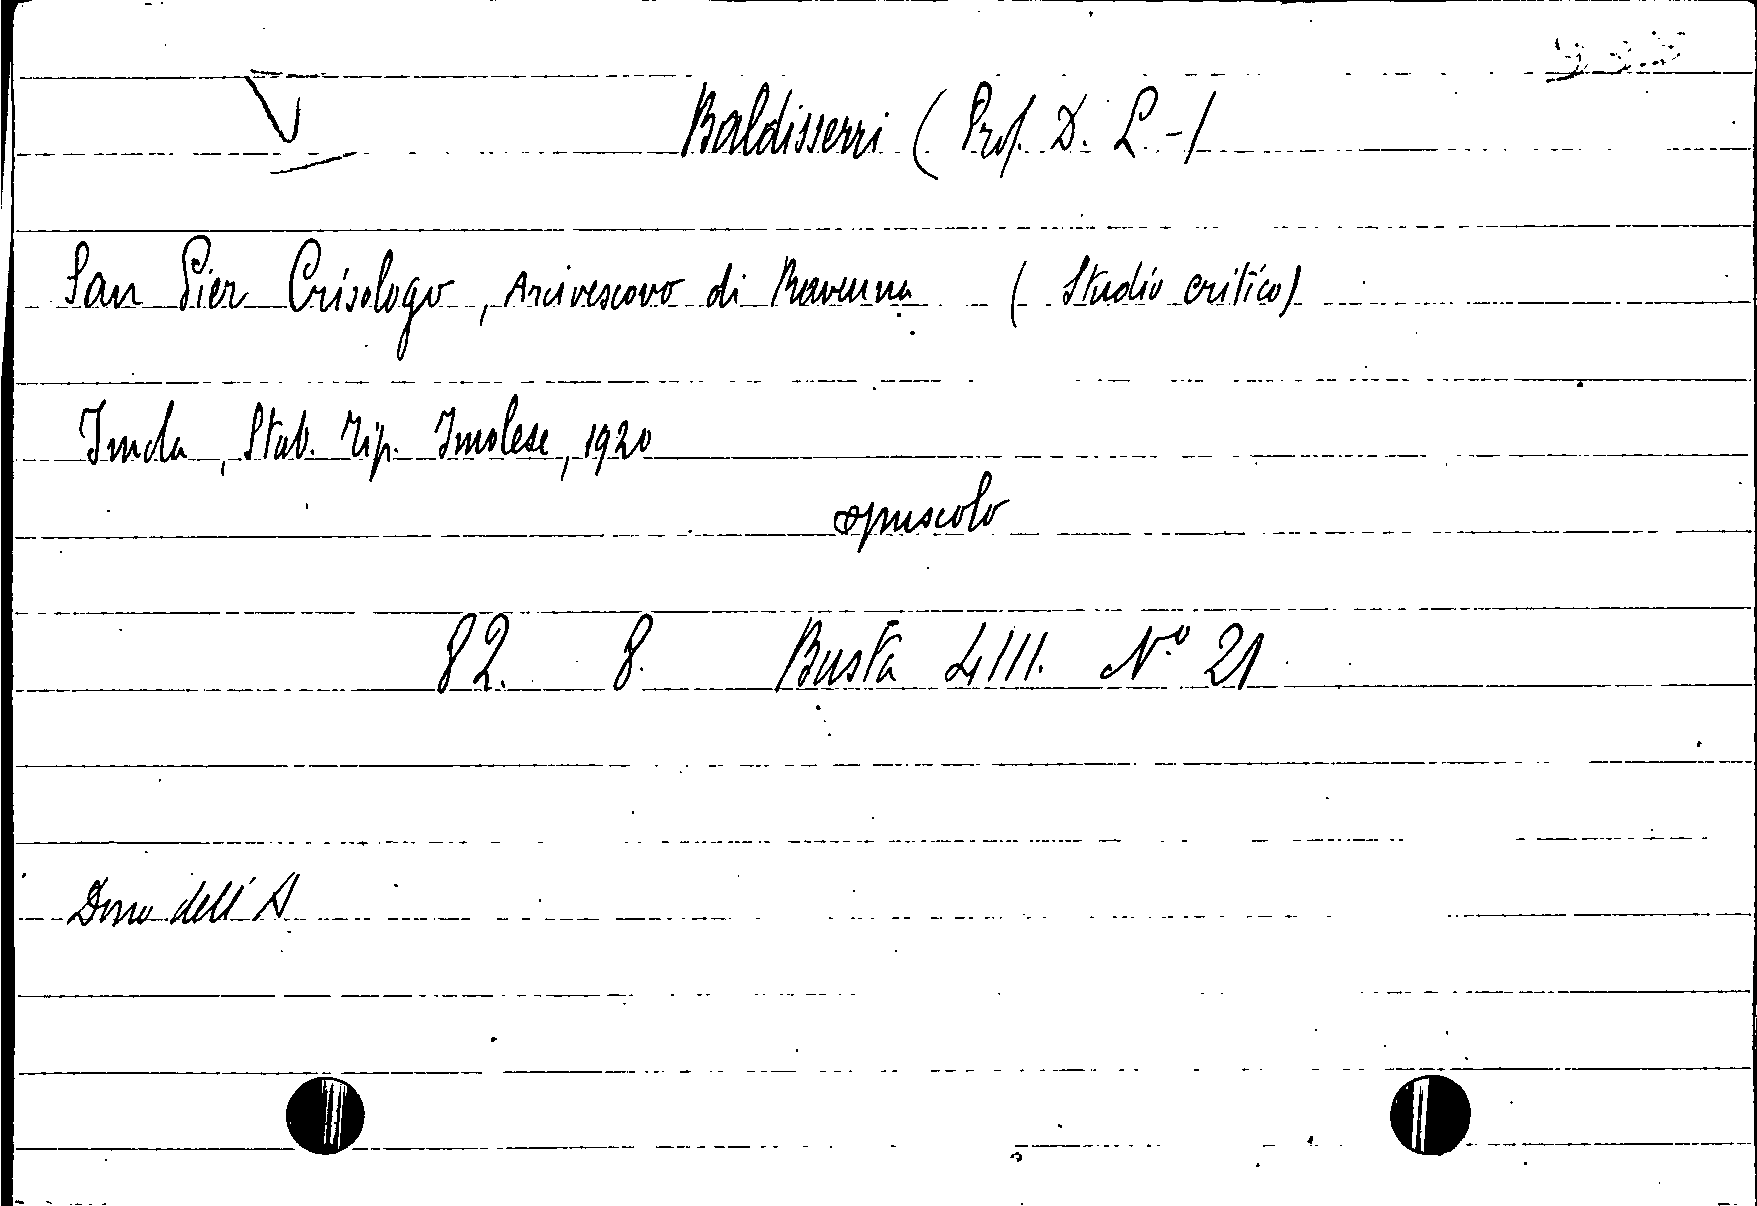 Baldisserri (Prof. D. L.-)
San Pier Crisologo, Arcivescovo di Ravenna (Studio critico)
Imola, Stab. Tip. Imolese, 1920
opuscolo
82. 8. Busta LIII. N.o 21
Dono dell'A